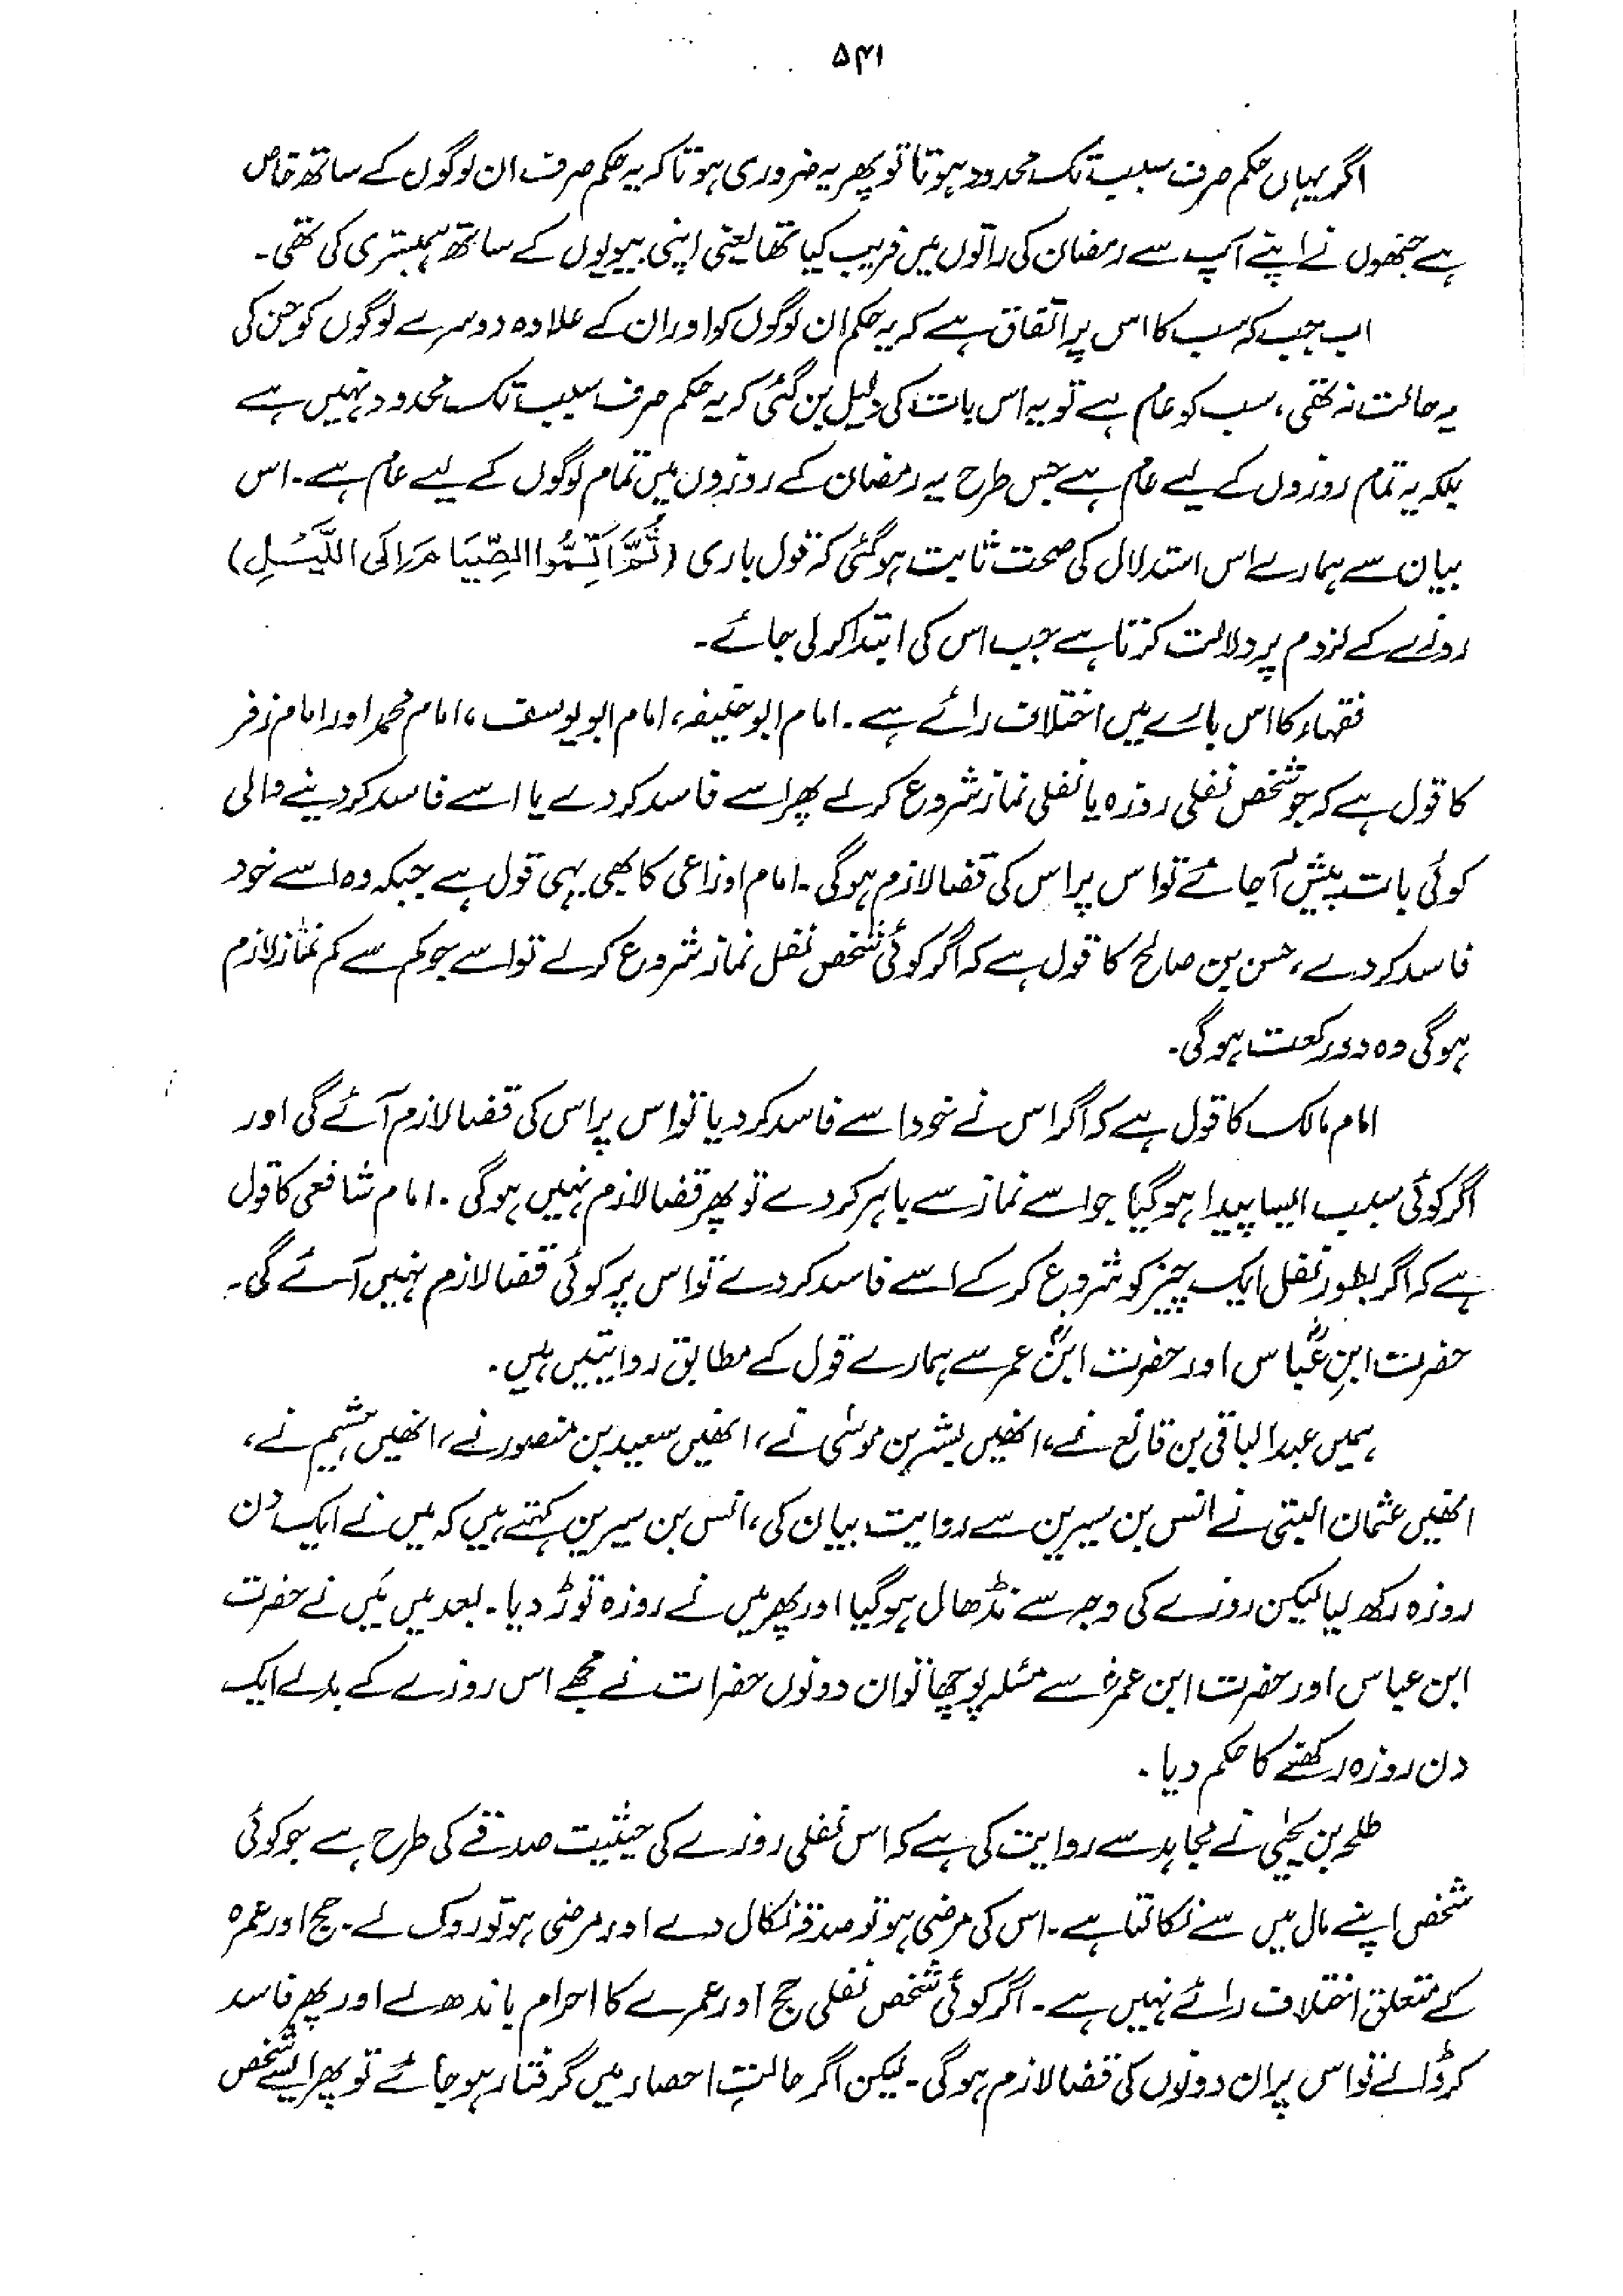 ۵۴۱
اگر یہاں حکم صرف سبب تک محدود ہوتا تو پھر یہ ضروری ہوتا کہ یہ حکم صرف ان لوگوں کے ساتھ خاص
ہے جنھوں نے اپنے آپ سے رمضان کی راتوں میں فریب کیا تھا یعنی اپنی بیویوں کے ساتھ ہمبستری کی تھی۔
اب جب کہ سب کا اس پر اتفاق ہے کہ یہ حکم ان لوگوں کو اور ان کے علاوہ دوسرے لوگوں کو جن کی
یہ حالت نہ تھی، سب کو عام ہے تو یہ اس بات کی دلیل بن گئی کہ یہ حکم صرف سبب تک محدود نہیں ہے
بلکہ یہ تمام روزوں کے لیے عام ہے جس طرح یہ رمضان کے روزوں میں تمام لوگوں کے لیے عام ہے۔ اس
بیان سے ہمارے اس استدلال کی صحت ثابت ہو گئی کہ قول باری (ثُمَّ اَتِمُّوا الصِّیَامَ اِلَی اللَّیْلِ)
روزے کے لزوم پر دلالت کرتا ہے جب اس کی ابتدا کر لی جائے۔
فقہاء کا اس بارے میں اختلاف رائے ہے۔ امام ابو حنیفہ، امام ابو یوسف، امام محمد اور امام زفر
کا قول ہے کہ جو شخص نفلی روزہ یا نفلی نماز شروع کرلے پھر اسے فاسد کردے یا اسے فاسد کردینے والی
کوئی بات پیش آجائے تو اس پر اس کی قضا لازم ہوگی۔ امام اوزاعی کا بھی یہی قول ہے جبکہ وہ اسے خود
فاسد کردے، حسن بن صالح کا قول ہے کہ اگر کوئی شخص نفل نماز شروع کرلے تو اسے جو کم سے کم نماز لازم
ہوگی وہ دو رکعت ہوگی۔
امام مالک کا قول ہے کہ اگر اس نے خود اسے فاسد کردیا تو اس پر اس کی قضا لازم آئے گی اور
اگر کوئی سبب ایسا پیدا ہوگیا جو اسے نماز سے باہر کردے تو پھر قضا لازم نہیں ہوگی۔ امام شافعی کا قول
ہے کہ اگر بطور نفل ایک چیز کو شروع کرکے اسے فاسد کردے تو اس پر کوئی قضا لازم نہیں آئے گی۔
حضرت ابنِ عباسؓ اور حضرت ابنؓ عمر سے ہمارے قول کے مطابق روایتیں ہیں۔
ہمیں عبدالباقی بن قانع نے، انھیں بشر بن موسٰی نے، انھیں سعید بن منصور نے، انھیں ہشیم نے،
انھیں عثمان البتی نے انس بن سیرین سے روایت بیان کی، انس بن سیرین کہتے ہیں کہ میں نے ایک دن
روزہ رکھ لیا لیکن روزے کی وجہ سے نڈھال ہوگیا اور پھر میں نے روزہ توڑ دیا۔ بعد میں میں نے حضرت
ابن عباس اور حضرت ابن عمرؓ سے مسئلہ پوچھا تو ان دونوں حضرات نے مجھے اس روزے کے بدلے ایک
دن روزہ رکھنے کا حکم دیا۔
طلحہ بن یحیٰی نے مجاہد سے روایت کی ہے کہ اس نفلی روزے کی حیثیت صدقے کی طرح ہے جو کوئی
شخص اپنے مال میں سے نکالتا ہے۔ اس کی مرضی ہو تو صدقہ نکال دے اور مرضی ہو تو روک لے۔ حج اور عمرہ
کے متعلق اختلاف رائے نہیں ہے۔ اگر کوئی شخص نفلی حج اور عمرے کا احرام باندھ لے اور پھر فاسد
کرڈالے تو اس پر ان دونوں کی قضا لازم ہوگی۔ لیکن اگر حالتِ احصار میں گرفتار ہوجائے تو پھر ایسے شخص